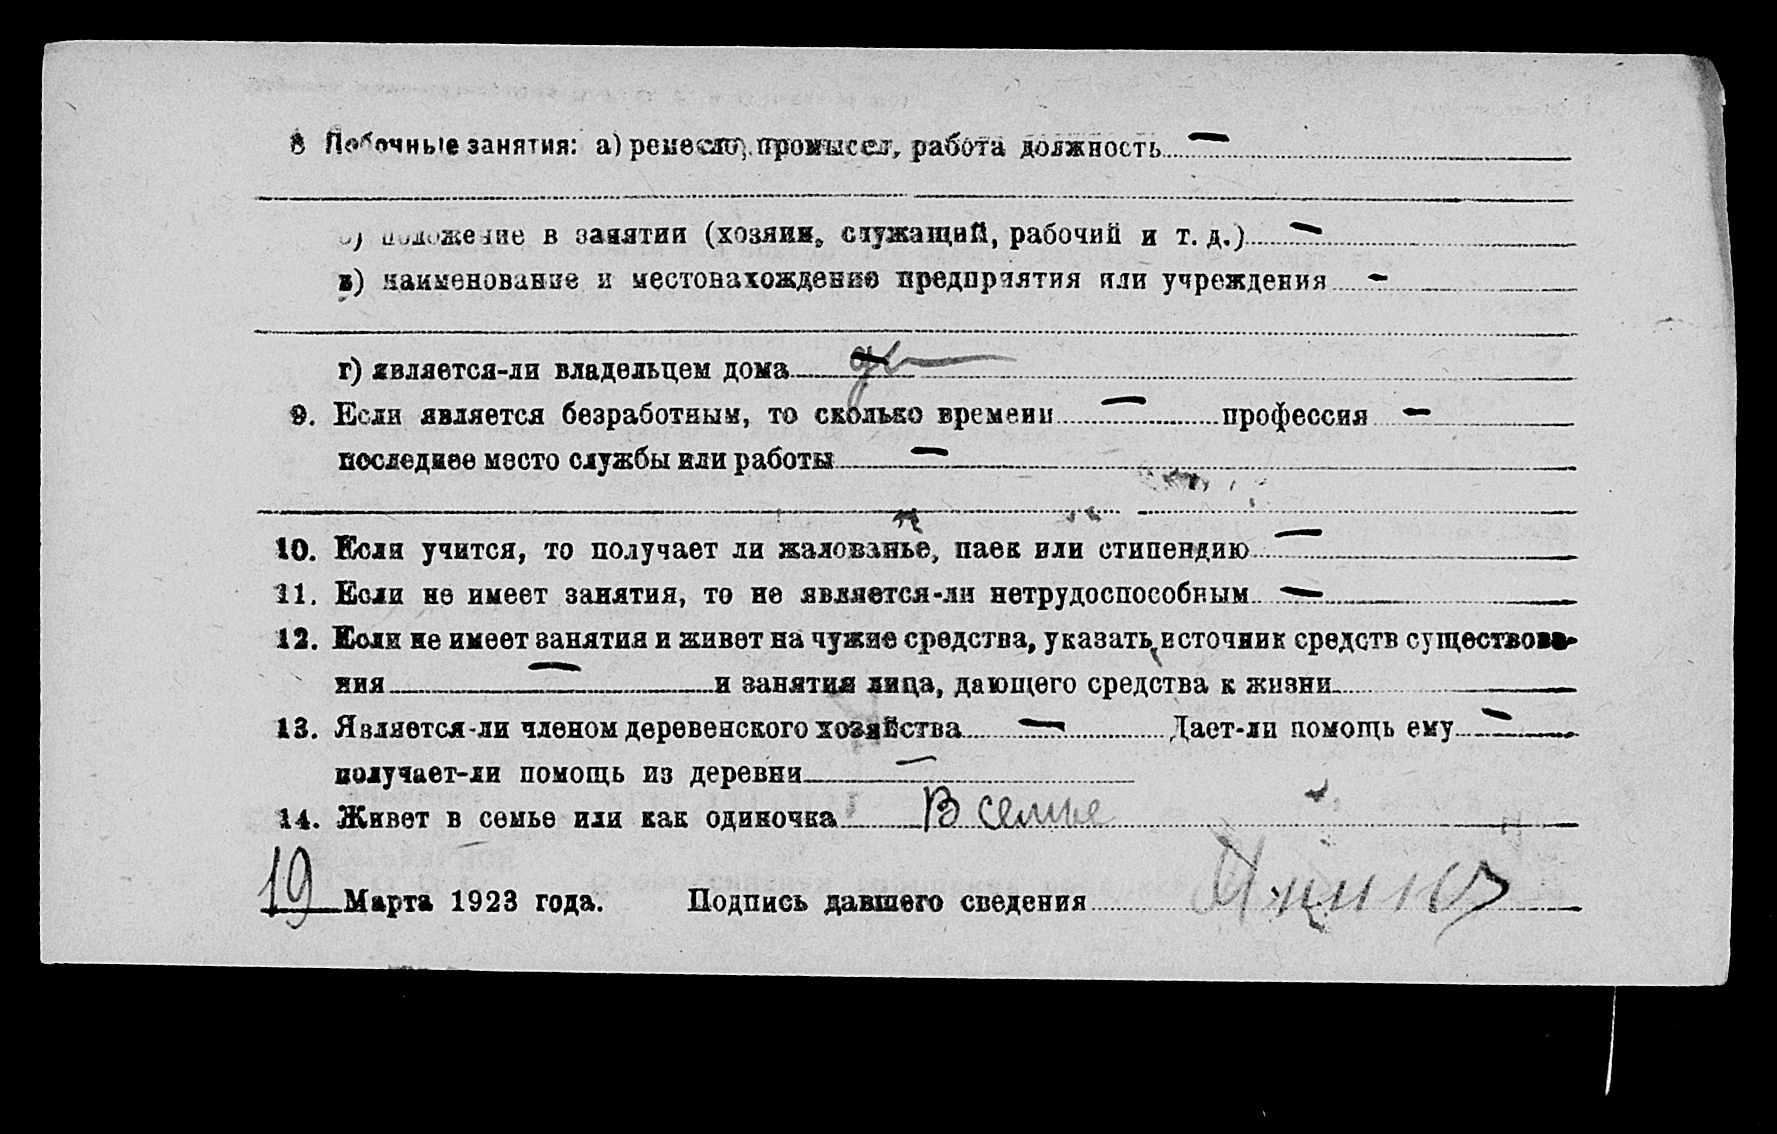 8 Побочные занятия: а) ремесло, промысел, работа должность —
б) положение в занятии (хозяин, служащий, рабочий и т. д.) —
в) наименование и местонахождение предприятия или учреждения —
г) является-ли владельцем дома
9. Если является безработным, то сколько времени — профессия —
последнее место службы или работы —
10. Если учится, то получает ли жалованье, паек или стипендию —
11. Если не имеет занятия, то не является-ли нетрудоспособным —
12. Если не имеет занятия и живет на чужие средства, указать источник средств существова-
ния — и занятия лица, дающего средства к жизни
13. Является-ли членом деревенского хозяйства — Дает-ли помощь ему —
получает-ли помощь из деревни —
14. Живет в семье или как одиночка В семье
19 Марта 1923 года. Подпись давшего сведения